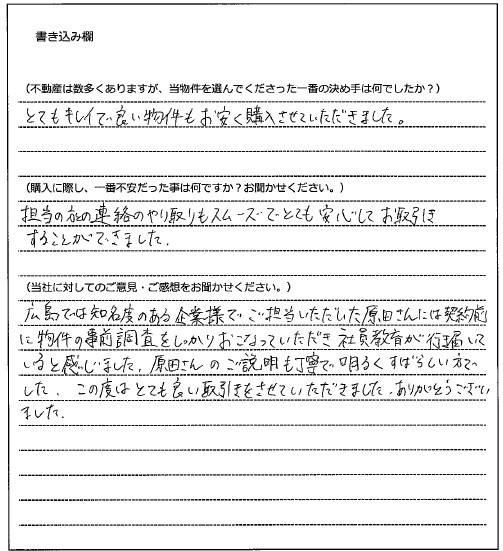 書き込み欄
(不動産は数多くありますが、当物件を選んでくださった一番の決め手は何でしたか?)
とてもキレイで良い物件をお安く購入させていただきました。
(購入に際し、一番不安だった事は何ですか?お聞かせください。)
担当の方の連絡のやり取りもスムーズでとても安心してお取引き
することができました.
(当社に対してのご意見・ご感想をお聞かせください。)
広島では知名度のある企業様で ご担当いただいた原田さんには契約前
に物件の事前調査をしっかりおこなっていただき 社員教育が行き届いて
いると感じました. 原田さんのご説明も丁寧で明るくすばらしい方で
した. この度はとても良い取引きをさせていただきました. ありがとうござい
ました.